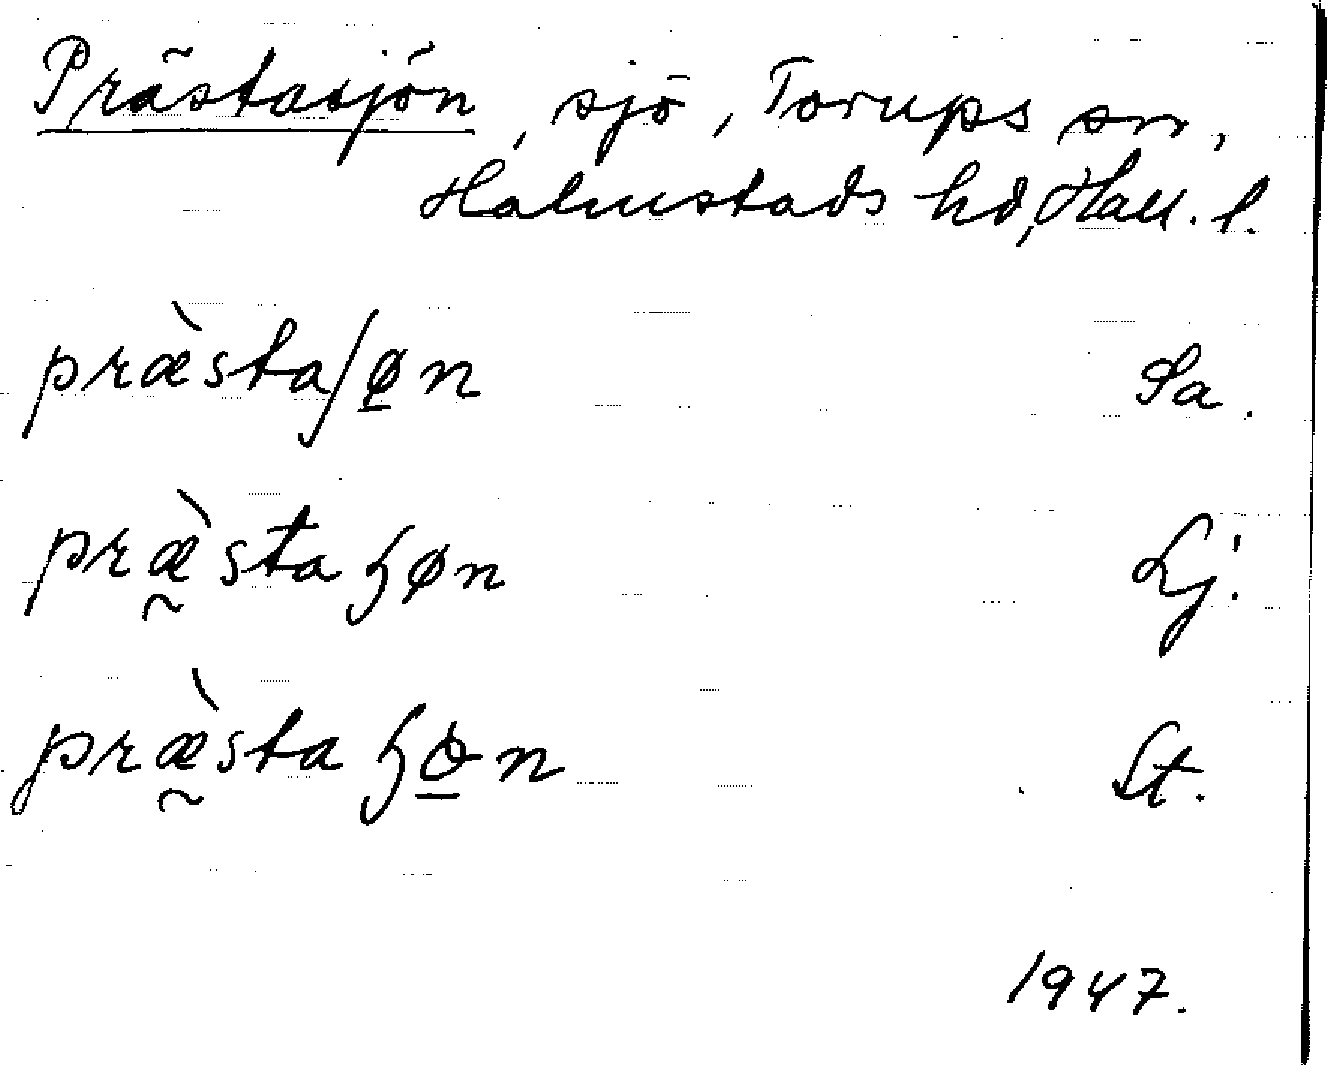 Prästasjön, sjö, Torups sn,
Halmstads hd, Hall. l.
præ̀staʃø̱n Sa.
præ̰̀staɧøn Lj.
præ̰̀staɧø̱n St.
1947.